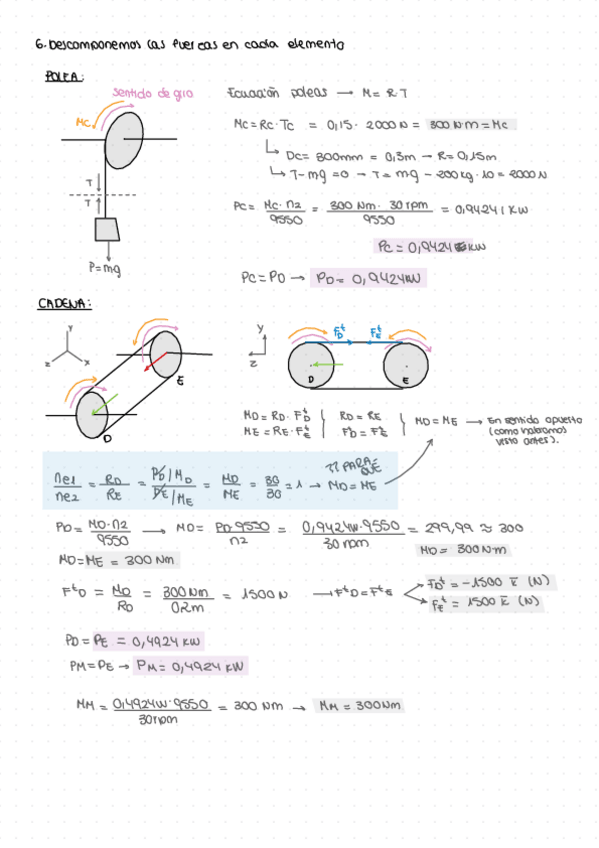 6. Descomponemos las fuerzas en cada elemento
POLEA:
sentido de giro
Mc
T
T
P=mg
Ecuación poleas → M= R·T
Mc=Rc·Tc = 0,15 · 2000N = 300 N·m = Mc
Dc= 800mm = 0,3m → R= 0,15m
T-mg =0 → T= mg - 200kg·10 = 2000 N
Pc= Mc·n2 / 9550 = 300 Nm · 30 rpm / 9550 = 0,9424 | KW
Pc= 0,9424 KW
Pc= PD → PD= 0,9424KW
CADENA:
Y
Z
X
E
D
Y
Z
F^t_D
F^t_E
D
E
MD= RD· F^t_D
ME= RE· F^t_E
RD= RE
F^t_D= F^t_E
MD= ME → En sentido opuesto
(como habíamos
visto antes).
ne1 / ne2 = RD / RE = PD/MD / PE/ME = MD / ME = 30 / 30 = 1 → MD= ME
PD= MD·n2 / 9550 → MD= PD·9550 / n2 = 0,9424W·9550 / 30 rpm = 299,99 ≈ 300
MD= 300N·m
MD=ME = 300 Nm
F^tD = MD / RD = 300Nm / 0,2m = 1500 N → F^tD= F^tE
F^t_D = -1500 k̄ (N)
F^t_E = 1500 k̄ (N)
PD= PE = 0,4924 KW
PM= PE → PM= 0,4924 KW
MM = 0,4924W·9550 / 30rpm = 300 Nm → MM = 300Nm